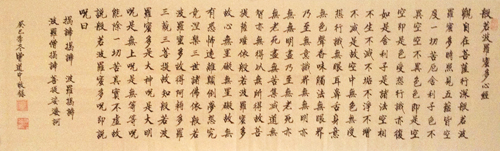 般若波羅蜜多心經
觀自在菩薩行深般若波
羅蜜多時照見五蘊皆空
度一切苦厄舍利子色不
異空空不異色色即是空
空即是色受想行識亦復
如是舍利子是諸法空相
不生不滅不垢不淨不增
不減是故空中無色無受
想行識無眼耳鼻舌身意
無色聲香味觸法無眼界
乃至無意識界無無明亦
無無明盡乃至無老死亦
無老死盡無苦集滅道
無智亦無得以無所得故菩
提薩埵依般若波羅蜜多
故心無罣礙無罣礙故無
有恐怖遠離顛倒夢想究
竟涅槃三世諸佛依般若
波羅蜜多故得阿耨多羅
三藐三菩提故知般若波
羅蜜多是大神咒是大明
咒是無上咒是無等等咒
能除一切苦真實不虛故
說般若波羅蜜多咒即說
咒曰
揭諦揭諦 波羅揭諦
波羅僧揭諦 菩提薩婆訶
癸巳年冬